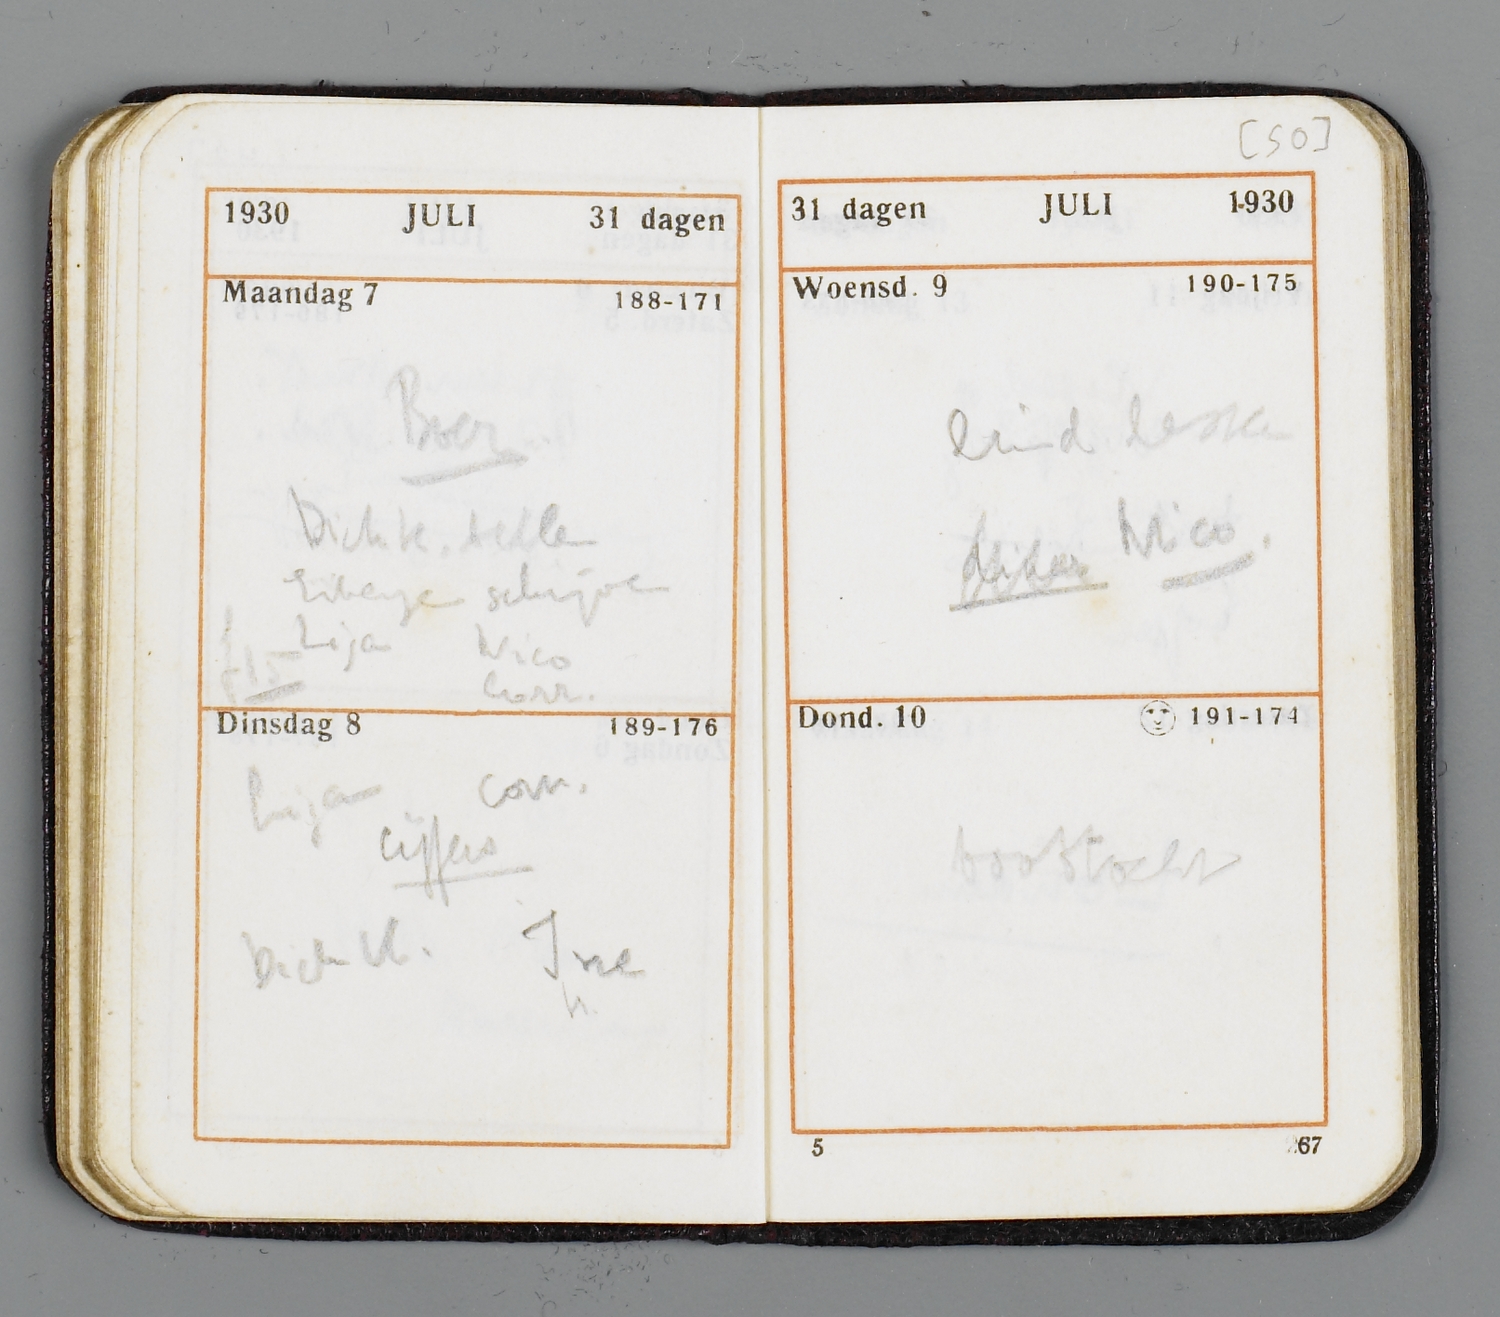 1930 JULI 31 dagen
Maandag 7 188-171
Boer
Dick K. belle
schijve
Lija Nico
f 15 Corr.
Dinsdag 8 189-176
Lija corr.
cijfers
Dick K.
[50]
31 dagen JULI 1930
Woensd. 9 190-175
eind lessen
Nico.
Dond. 10 191-174
boottocht
5 267